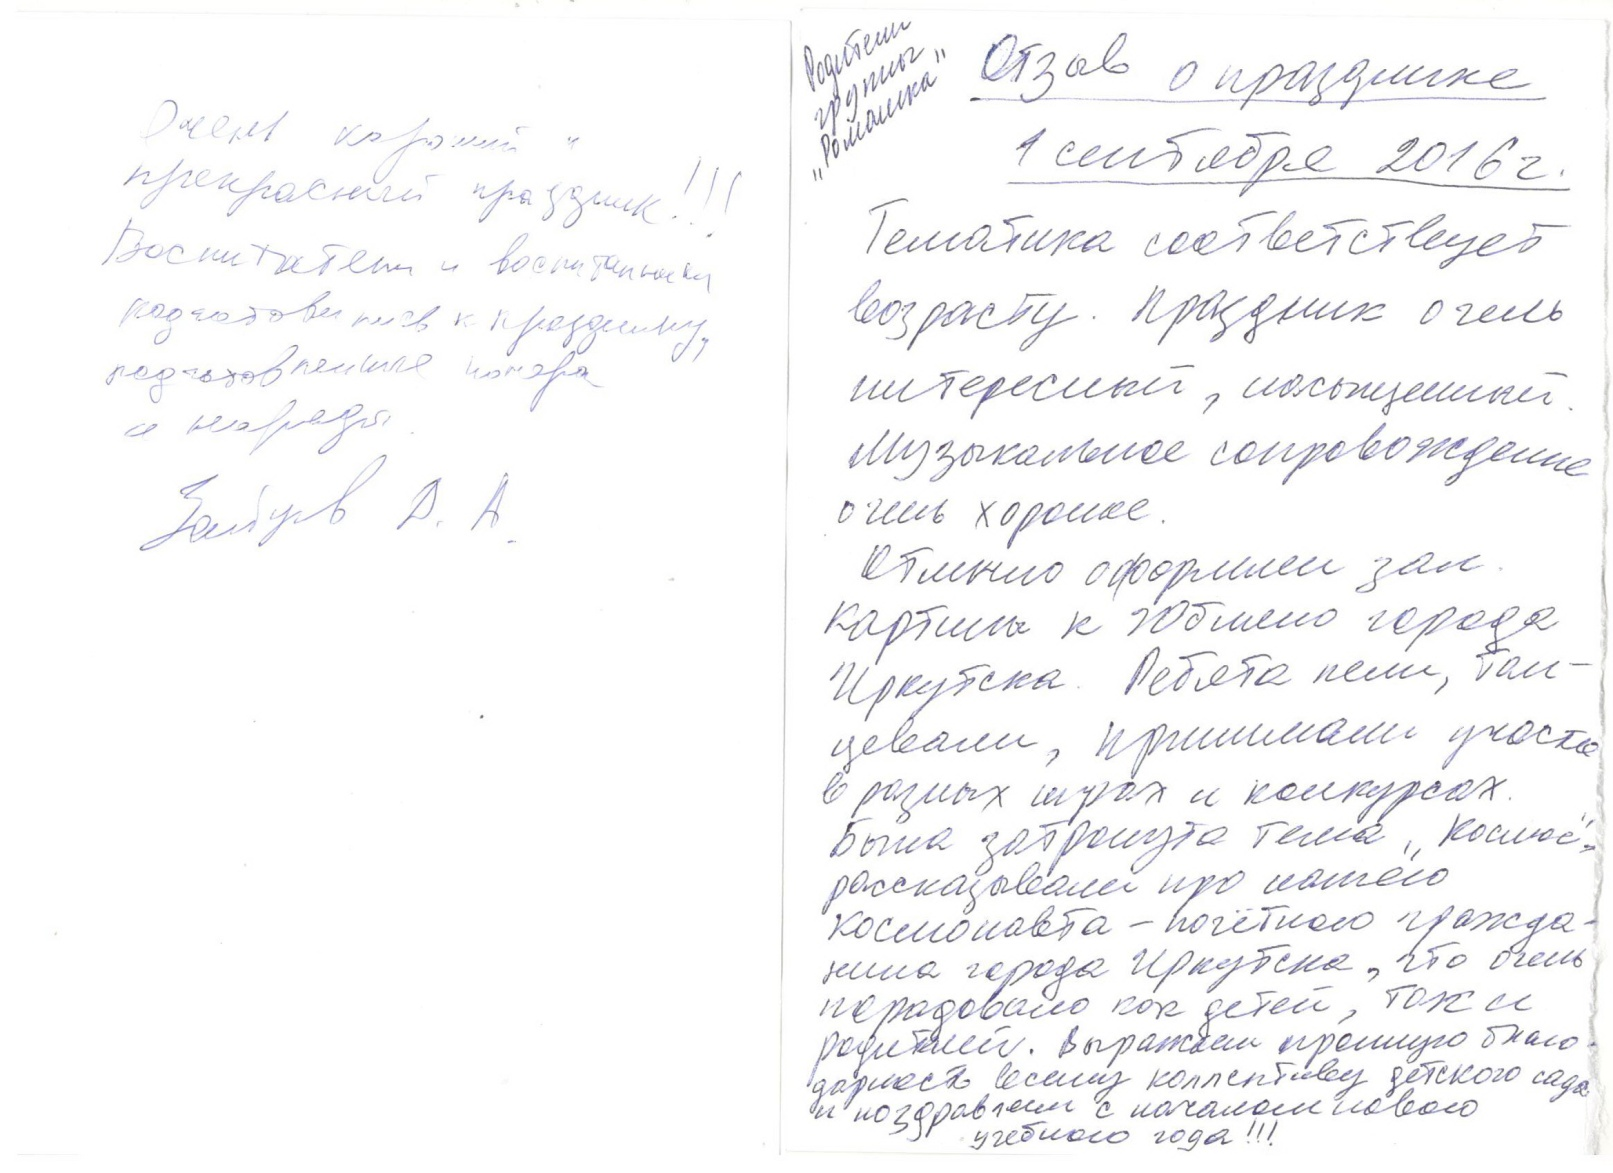 Очень хороший и
прекрасный праздник!!!
Воспитатели и воспитанники
подготовились к празднику,
подготовленные номера
и наряды.
Зайцев Д. А.
Родители
группы
"Ромашка"
Отзыв о празднике
1 сентября 2016 г.
Тематика соответствует
возрасту. Праздник очень
интересный, насыщенный.
Музыкальное сопровождение
очень хорошее.
Отлично оформлен зал.
Картины к Юбилею города
Иркутска. Ребята пели, тан-
цевали, принимали участие
в разных играх и конкурсах.
Была затронута тема "Космос",
рассказывали про нашего
космонавта – почётного гражда-
нина города Иркутска, что очень
порадовало как детей, так и
родителей. Выражаем огромную благо-
дарность всему коллективу детского сада
и поздравляем с началом нового
учебного года!!!